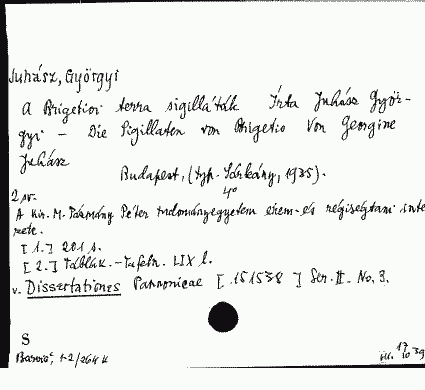 Juhász, Györgyi
A Brigetioi terra sigilláták Írta Juhász Györ-
gyi – Die Sigillaten von Brigetio Von Georgine
Juhász
Budapest, (typ. Sárkány, 1935).
4°
2 pr.
A Kir. M. Pázmány Péter tudományegyetem érem- és régiségtani inté
zete.
[1.] 201 s.
[2.] Táblák. – Tafeln. LIX l.
v. Dissertationes Pannonicae [151538] Ser. II. No. 3.
S
17
10 39